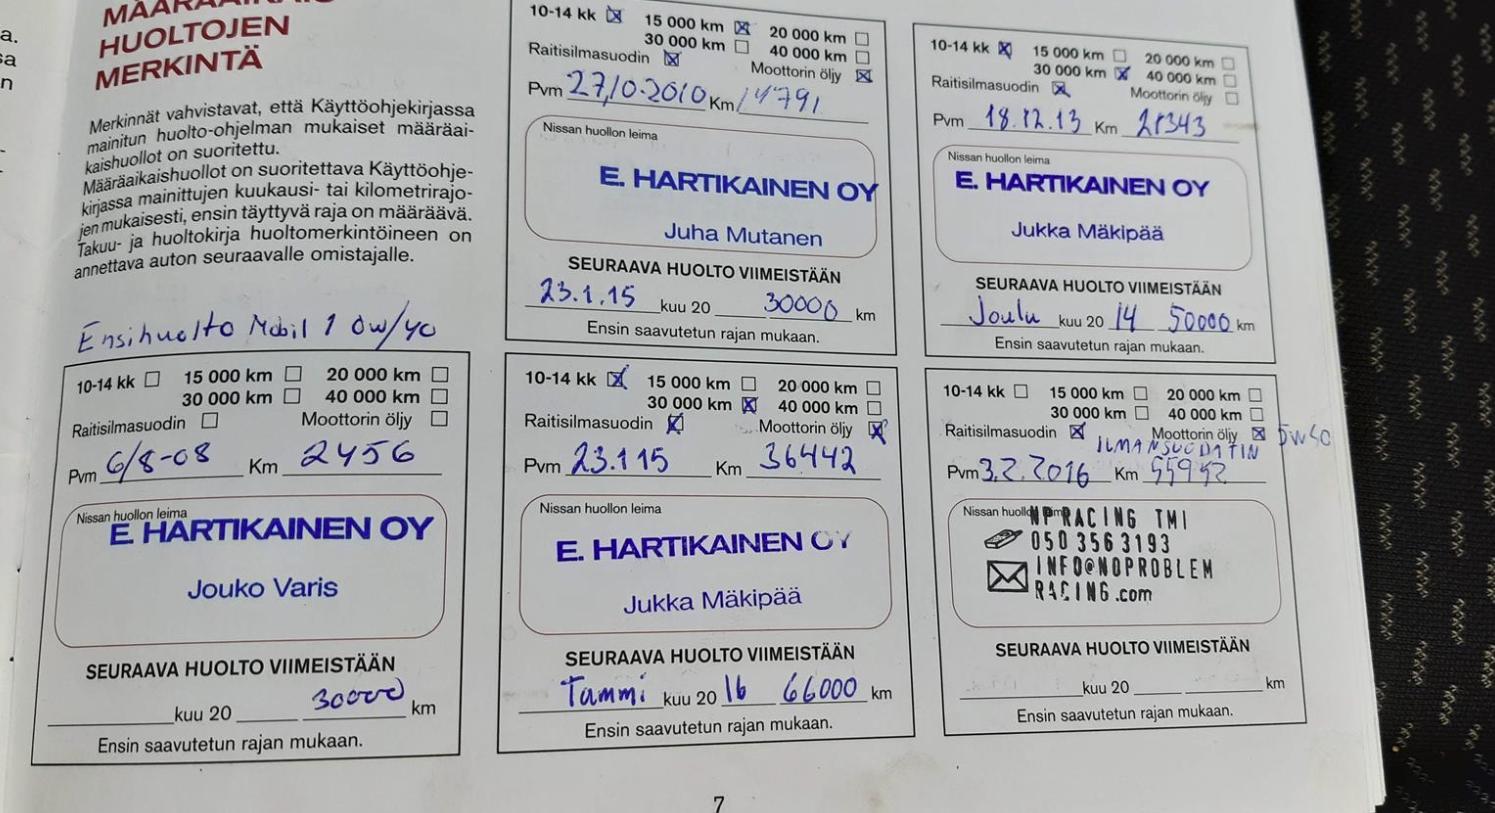 a.
sa
n
MÄÄRÄAIKAIS
HUOLTOJEN
MERKINTÄ
Merkinnät vahvistavat, että Käyttöohjekirjassa
mainitun huolto-ohjelman mukaiset määräai-
kaishuollot on suoritettu.
Määräaikaishuollot on suoritettava Käyttöohje-
kirjassa mainittujen kuukausi- tai kilometrirajo-
jen mukaisesti, ensin täyttyvä raja on määräävä.
Takuu- ja huoltokirja huoltomerkintöineen on
annettava auton seuraavalle omistajalle.
Ensihuolto Mobil 1 0w/40
10-14 kk 15 000 km 20 000 km
30 000 km 40 000 km
Raitisilmasuodin Moottorin öljy
Pvm 6/8-08 Km 2456
Nissan huollon leima
E. HARTIKAINEN OY
Jouko Varis
SEURAAVA HUOLTO VIIMEISTÄÄN
kuu 20 30000 km
Ensin saavutetun rajan mukaan.
10-14 kk 15 000 km 20 000 km
30 000 km 40 000 km
Raitisilmasuodin Moottorin öljy
Pvm 27/10-2010 Km 14791
Nissan huollon leima
E. HARTIKAINEN OY
Juha Mutanen
SEURAAVA HUOLTO VIIMEISTÄÄN
23.1.15 kuu 20 30000 km
Ensin saavutetun rajan mukaan.
10-14 kk 15 000 km 20 000 km
30 000 km 40 000 km
Raitisilmasuodin Moottorin öljy
Pvm 23.1 15 Km 36442
Nissan huollon leima
E. HARTIKAINEN OY
Jukka Mäkipää
SEURAAVA HUOLTO VIIMEISTÄÄN
Tammi kuu 20 16 66000 km
Ensin saavutetun rajan mukaan.
10-14 kk 15 000 km 20 000 km
30 000 km 40 000 km
Raitisilmasuodin Moottorin öljy
Pvm 18.12.13 Km 21343
Nissan huollon leima
E. HARTIKAINEN OY
Jukka Mäkipää
SEURAAVA HUOLTO VIIMEISTÄÄN
Joulu kuu 20 14 50000 km
Ensin saavutetun rajan mukaan.
10-14 kk 15 000 km 20 000 km
30 000 km 40 000 km
Raitisilmasuodin Moottorin öljy 5W30
ILMANSUODATIN
Pvm 3.2.2016 Km 55952
Nissan huollon
NP RACING TMI
050 356 3193
INFO@NOPROBLEM
RACING.com
SEURAAVA HUOLTO VIIMEISTÄÄN
kuu 20 km
Ensin saavutetun rajan mukaan.
7